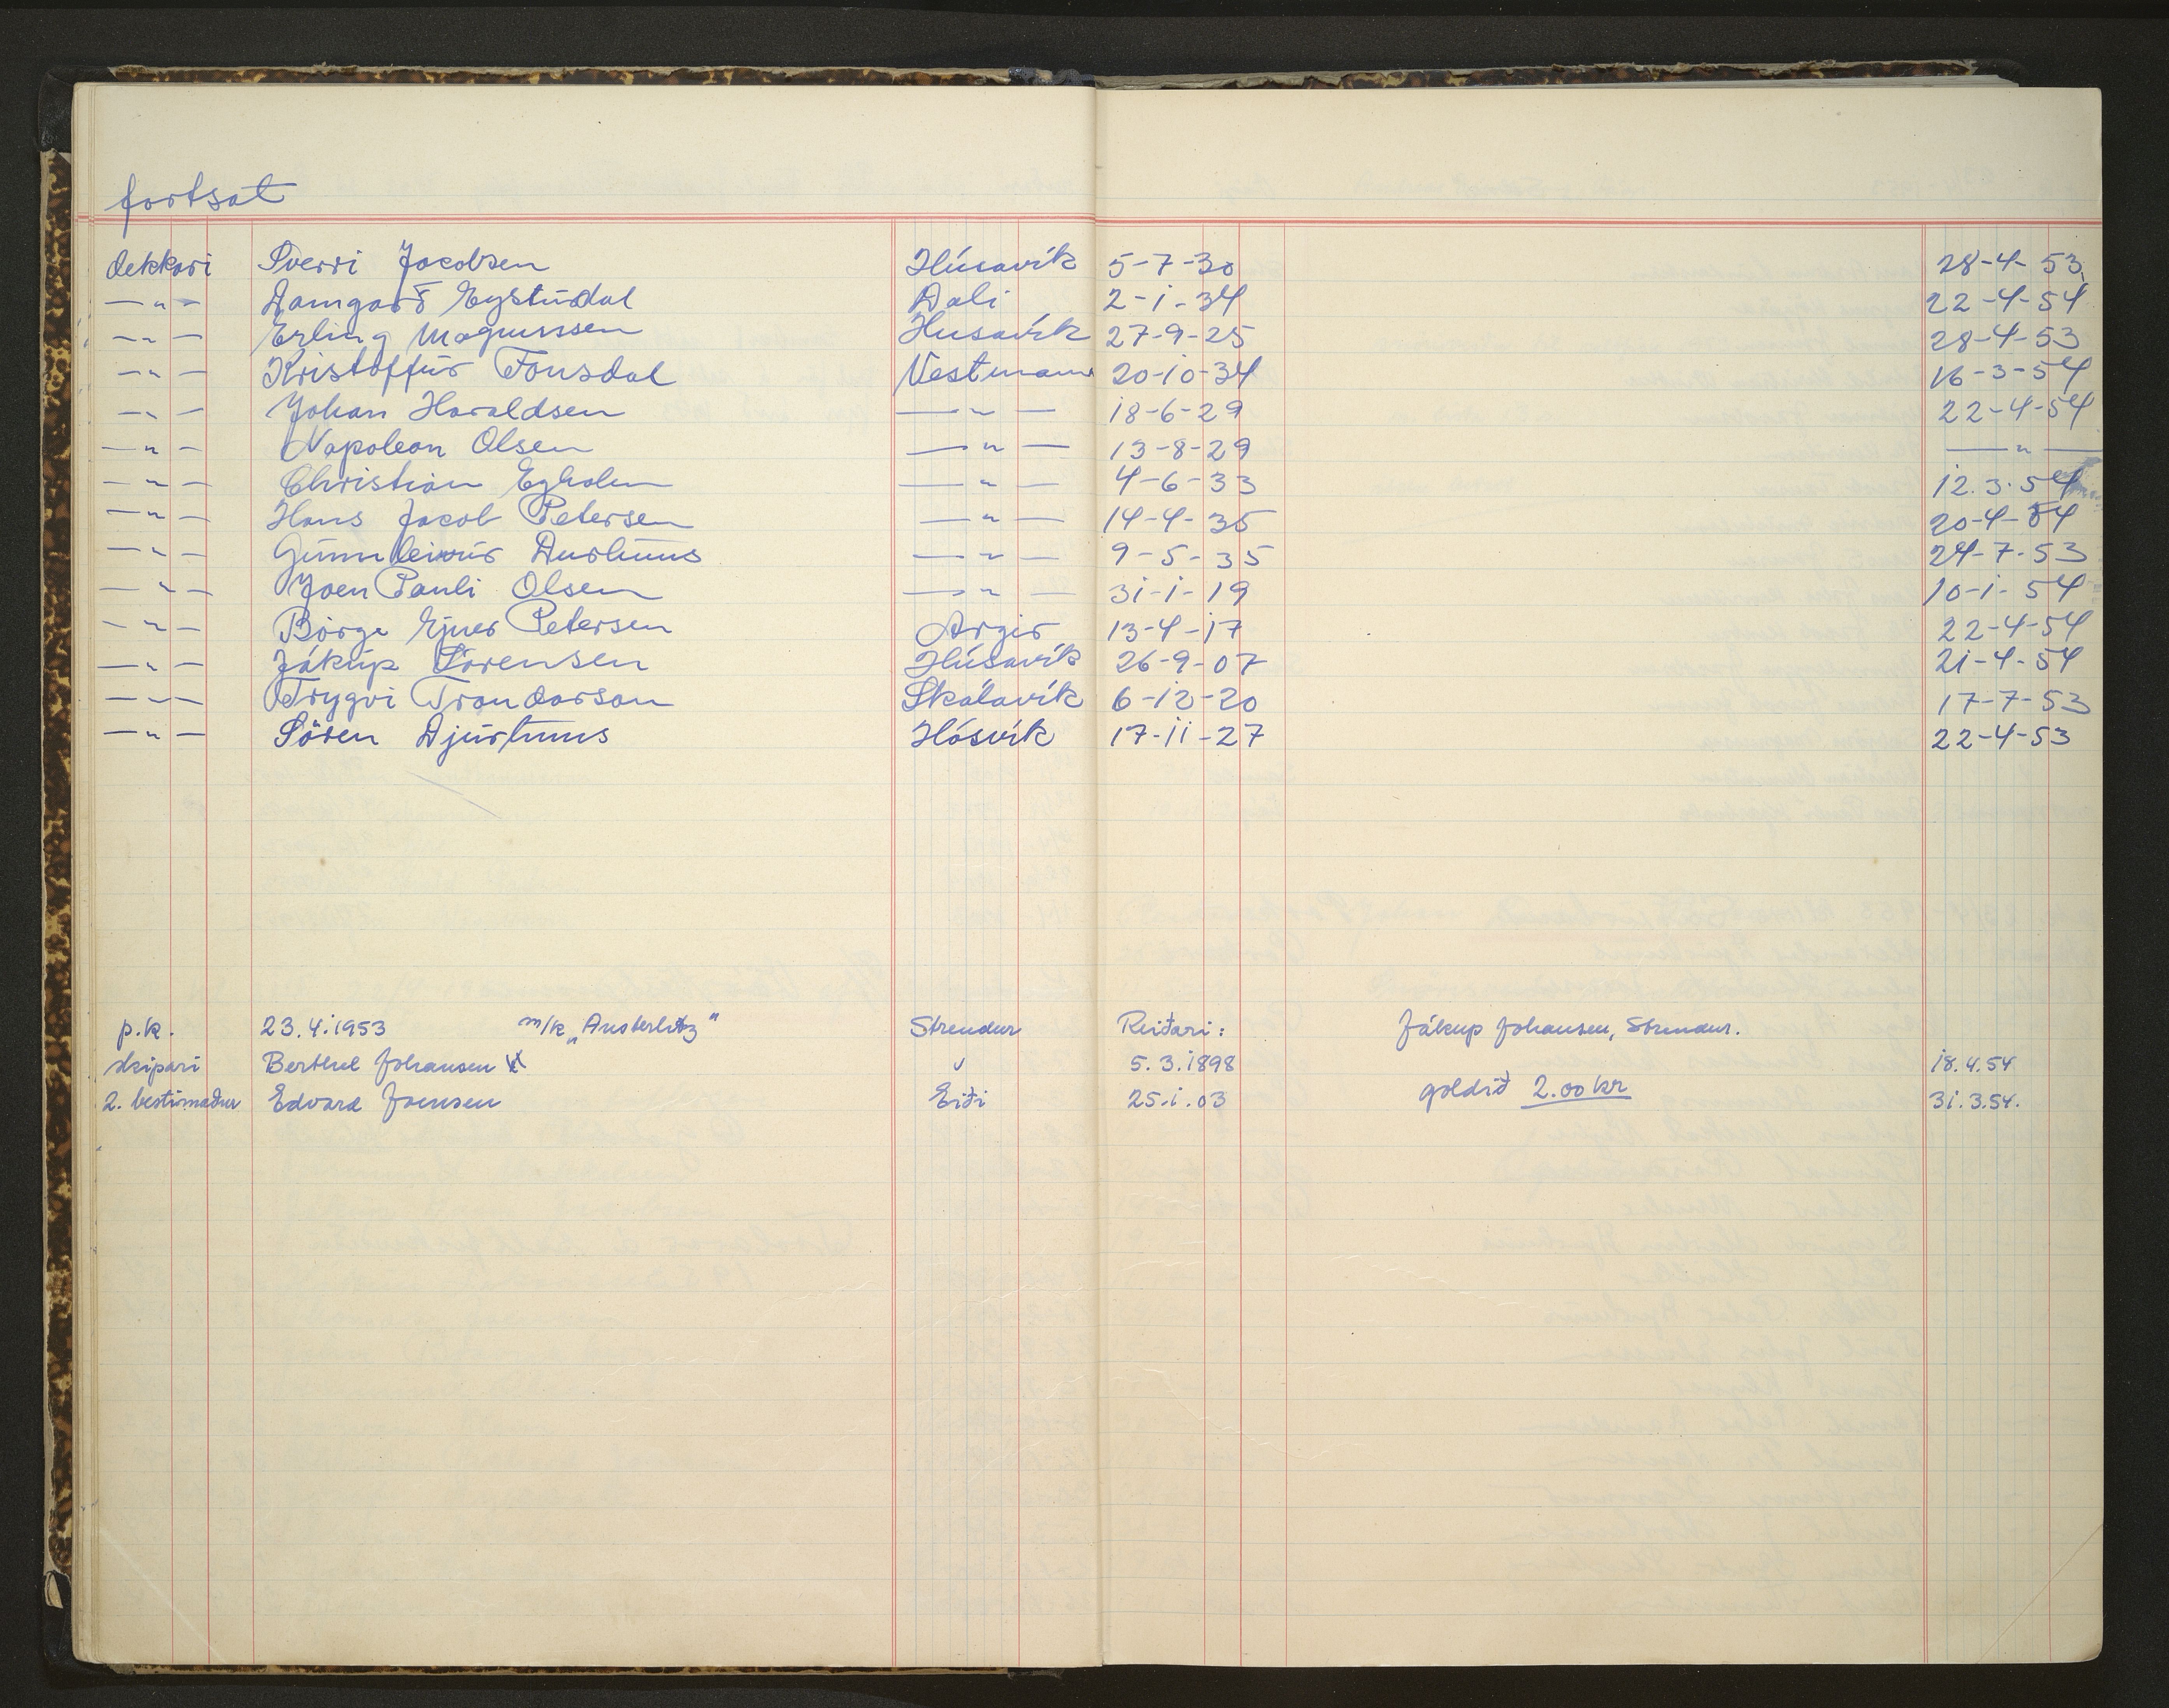 fortsat
dekkari Sverri Jacobsen Húsavík 5-7-30 28-4-53
—"— Damgarð Eystúrdal Dali 2-1-34 22-4-54
—"— Erling Magnussen Husavík 27-9-25 28-4-53
—"— Kristoffur Fonsdal Vestmann 20-10-34 16-3-54
—"— Johan Haraldsen —"— 18-6-29 22-4-54
—"— Napoleon Olsen —"— 13-8-29 —"—
—"— Christian Egholm —"— 4-6-33 12.3.54
—"— Hans Jacob Petersen —"— 14-4-35 20-4-54
—"— Gunnleivur Durhuus —"— 9-5-35 24-7-53
—"— Joen Pauli Olsen —"— 31-1-19 10-1-54
—"— Börge Ejner Petersen Argir 13-4-17 22-4-54
—"— Jákúp Sörensen Húsavík 26-9-07 21-4-54
—"— Trygvi Trondarson Skálavík 6-12-20 17-7-53
—"— Sören Djúrhuus Hósvík 17-11-27 22-4-53
p.k. 23.4.1953 m/k „Austerlitz" Strendur Reiðari: Jákup Johansen, Strendur.
skipari Berthel Johansen v 5.3.1898 18.4.54
2. bestimaður Edvard Joensen Eiði 25.1.03 goldið 2.00 kr 31.3.54.